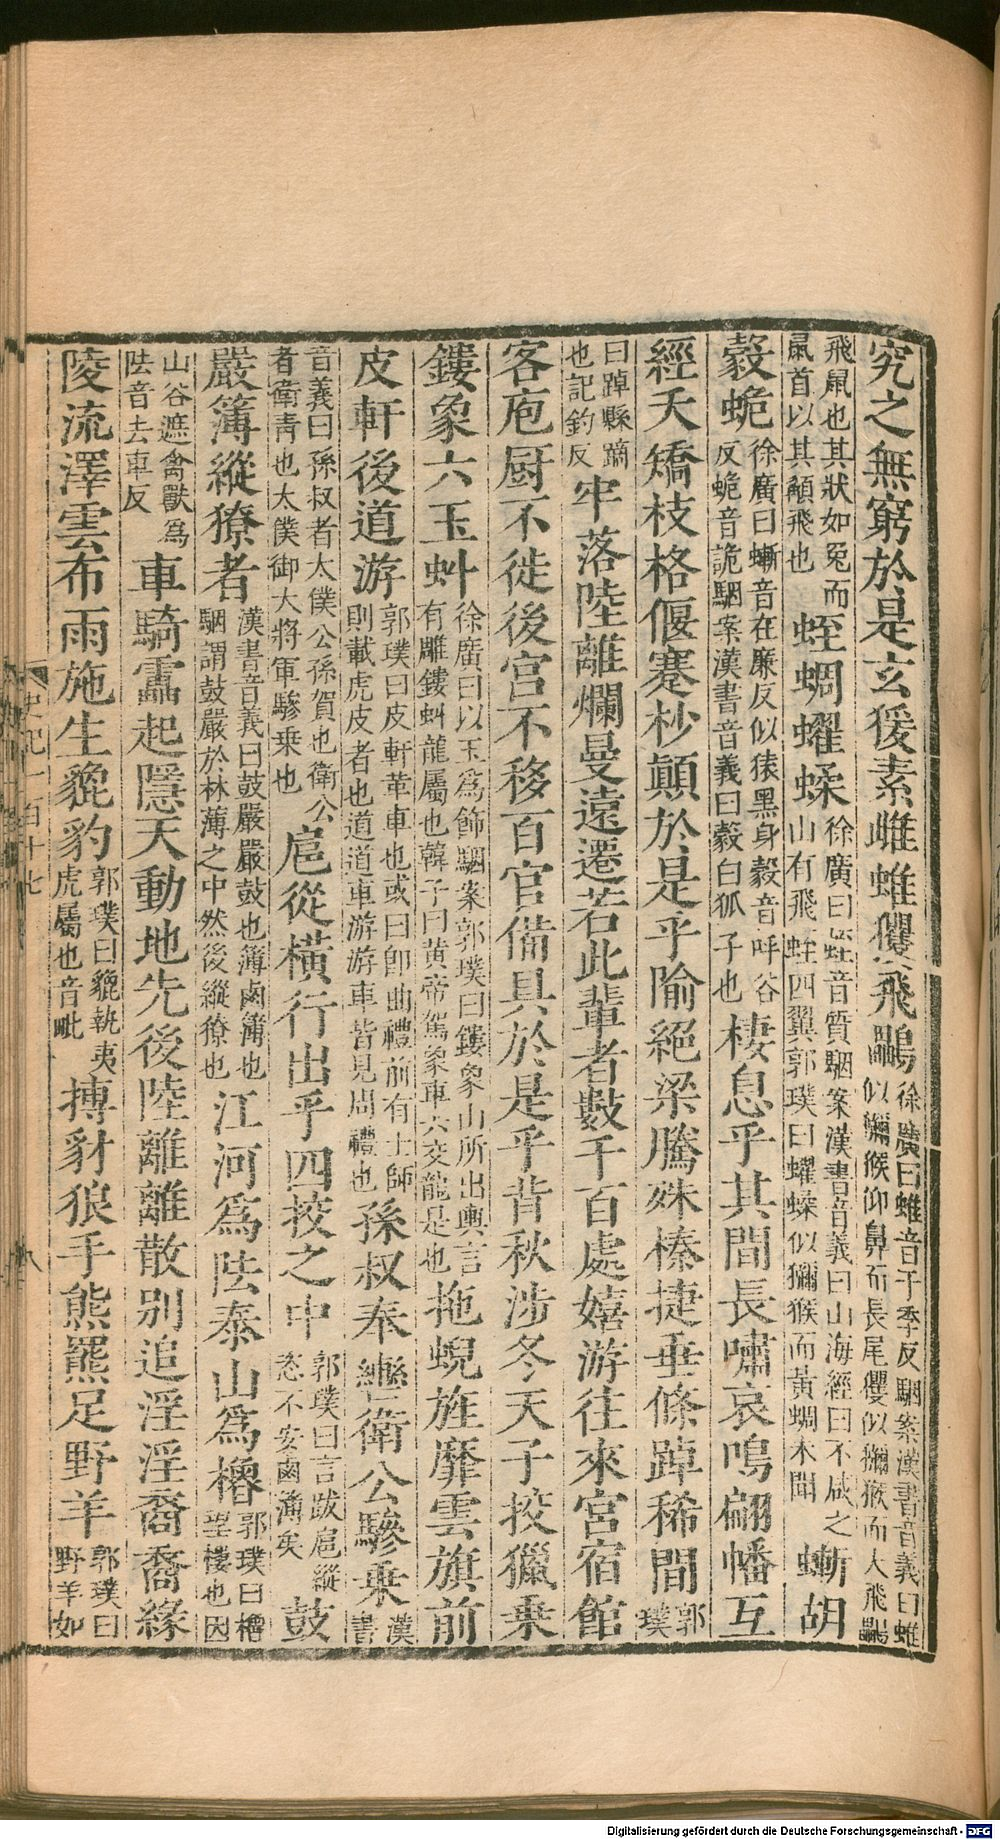 究之無窮於是玄猨素雌蜼玃飛鸓徐廣曰蜼音于季反駰案漢書音義曰蜼似獼猴仰鼻而長尾玃似獼猴而大飛鸓
飛鼠也其狀如兔而鼠首以其䫇飛也蛭蜩蠗蝚徐廣曰蛭音質駰案漢書音義曰山海經曰不咸之山有飛蛭四翼郭璞曰蠗蝚似獼猴而黃蜩未聞螹胡
豰蛫徐廣曰螹音在廉反似猿黑身豰音呼谷反蛫音詭駰案漢書音義曰豰白狐子也棲息乎其間長嘯哀鳴翩幡互
經夭矯枝格偃蹇杪顛於是乎隃絕梁騰殊榛捷垂條踔稀間郭璞
曰踔縣蹢也記釣反牢落陸離爛曼遠遷若此輩者數千百處嬉游往來宮宿館
客庖厨不徙後宮不移百官備具於是乎背秋涉冬天子挍獵乗
鏤象六玉虯徐廣曰以玉爲飾駰案郭璞曰鏤象山所出輿言有雕鏤虯龍屬也韓子曰黄帝駕象車六交龍是也拖蜺旌靡雲旗前
皮軒後道游郭璞曰皮軒革車也或曰卽曲禮前有士師則載虎皮者也道道車游游車皆見周禮也孫叔奉轡衛公驂乗漢書
音義曰孫叔者太僕公孫賀也衛公者衛青也太僕御大將軍驂乗也扈從橫行出乎四挍之中郭璞曰言跋扈縱恣不安鹵簿矣鼓
嚴簿縱獠者漢書音義曰鼓嚴嚴鼓也簿鹵簿也駰謂鼓嚴於林薄之中然後縱獠也江河爲阹泰山爲櫓郭璞曰櫓望樓也因
山谷遮禽獸爲阹音去車反車騎靁起隱天動地先後陸離離散別追淫淫裔裔緣
陵流澤雲布雨施生貔豹郭璞曰貔執夷虎屬也音毗搏豺狼手熊羆足野羊郭璞曰野羊如
史記一百十七
八
Digitalisierung gefördert durch die Deutsche Forschungsgemeinschaft - DFG